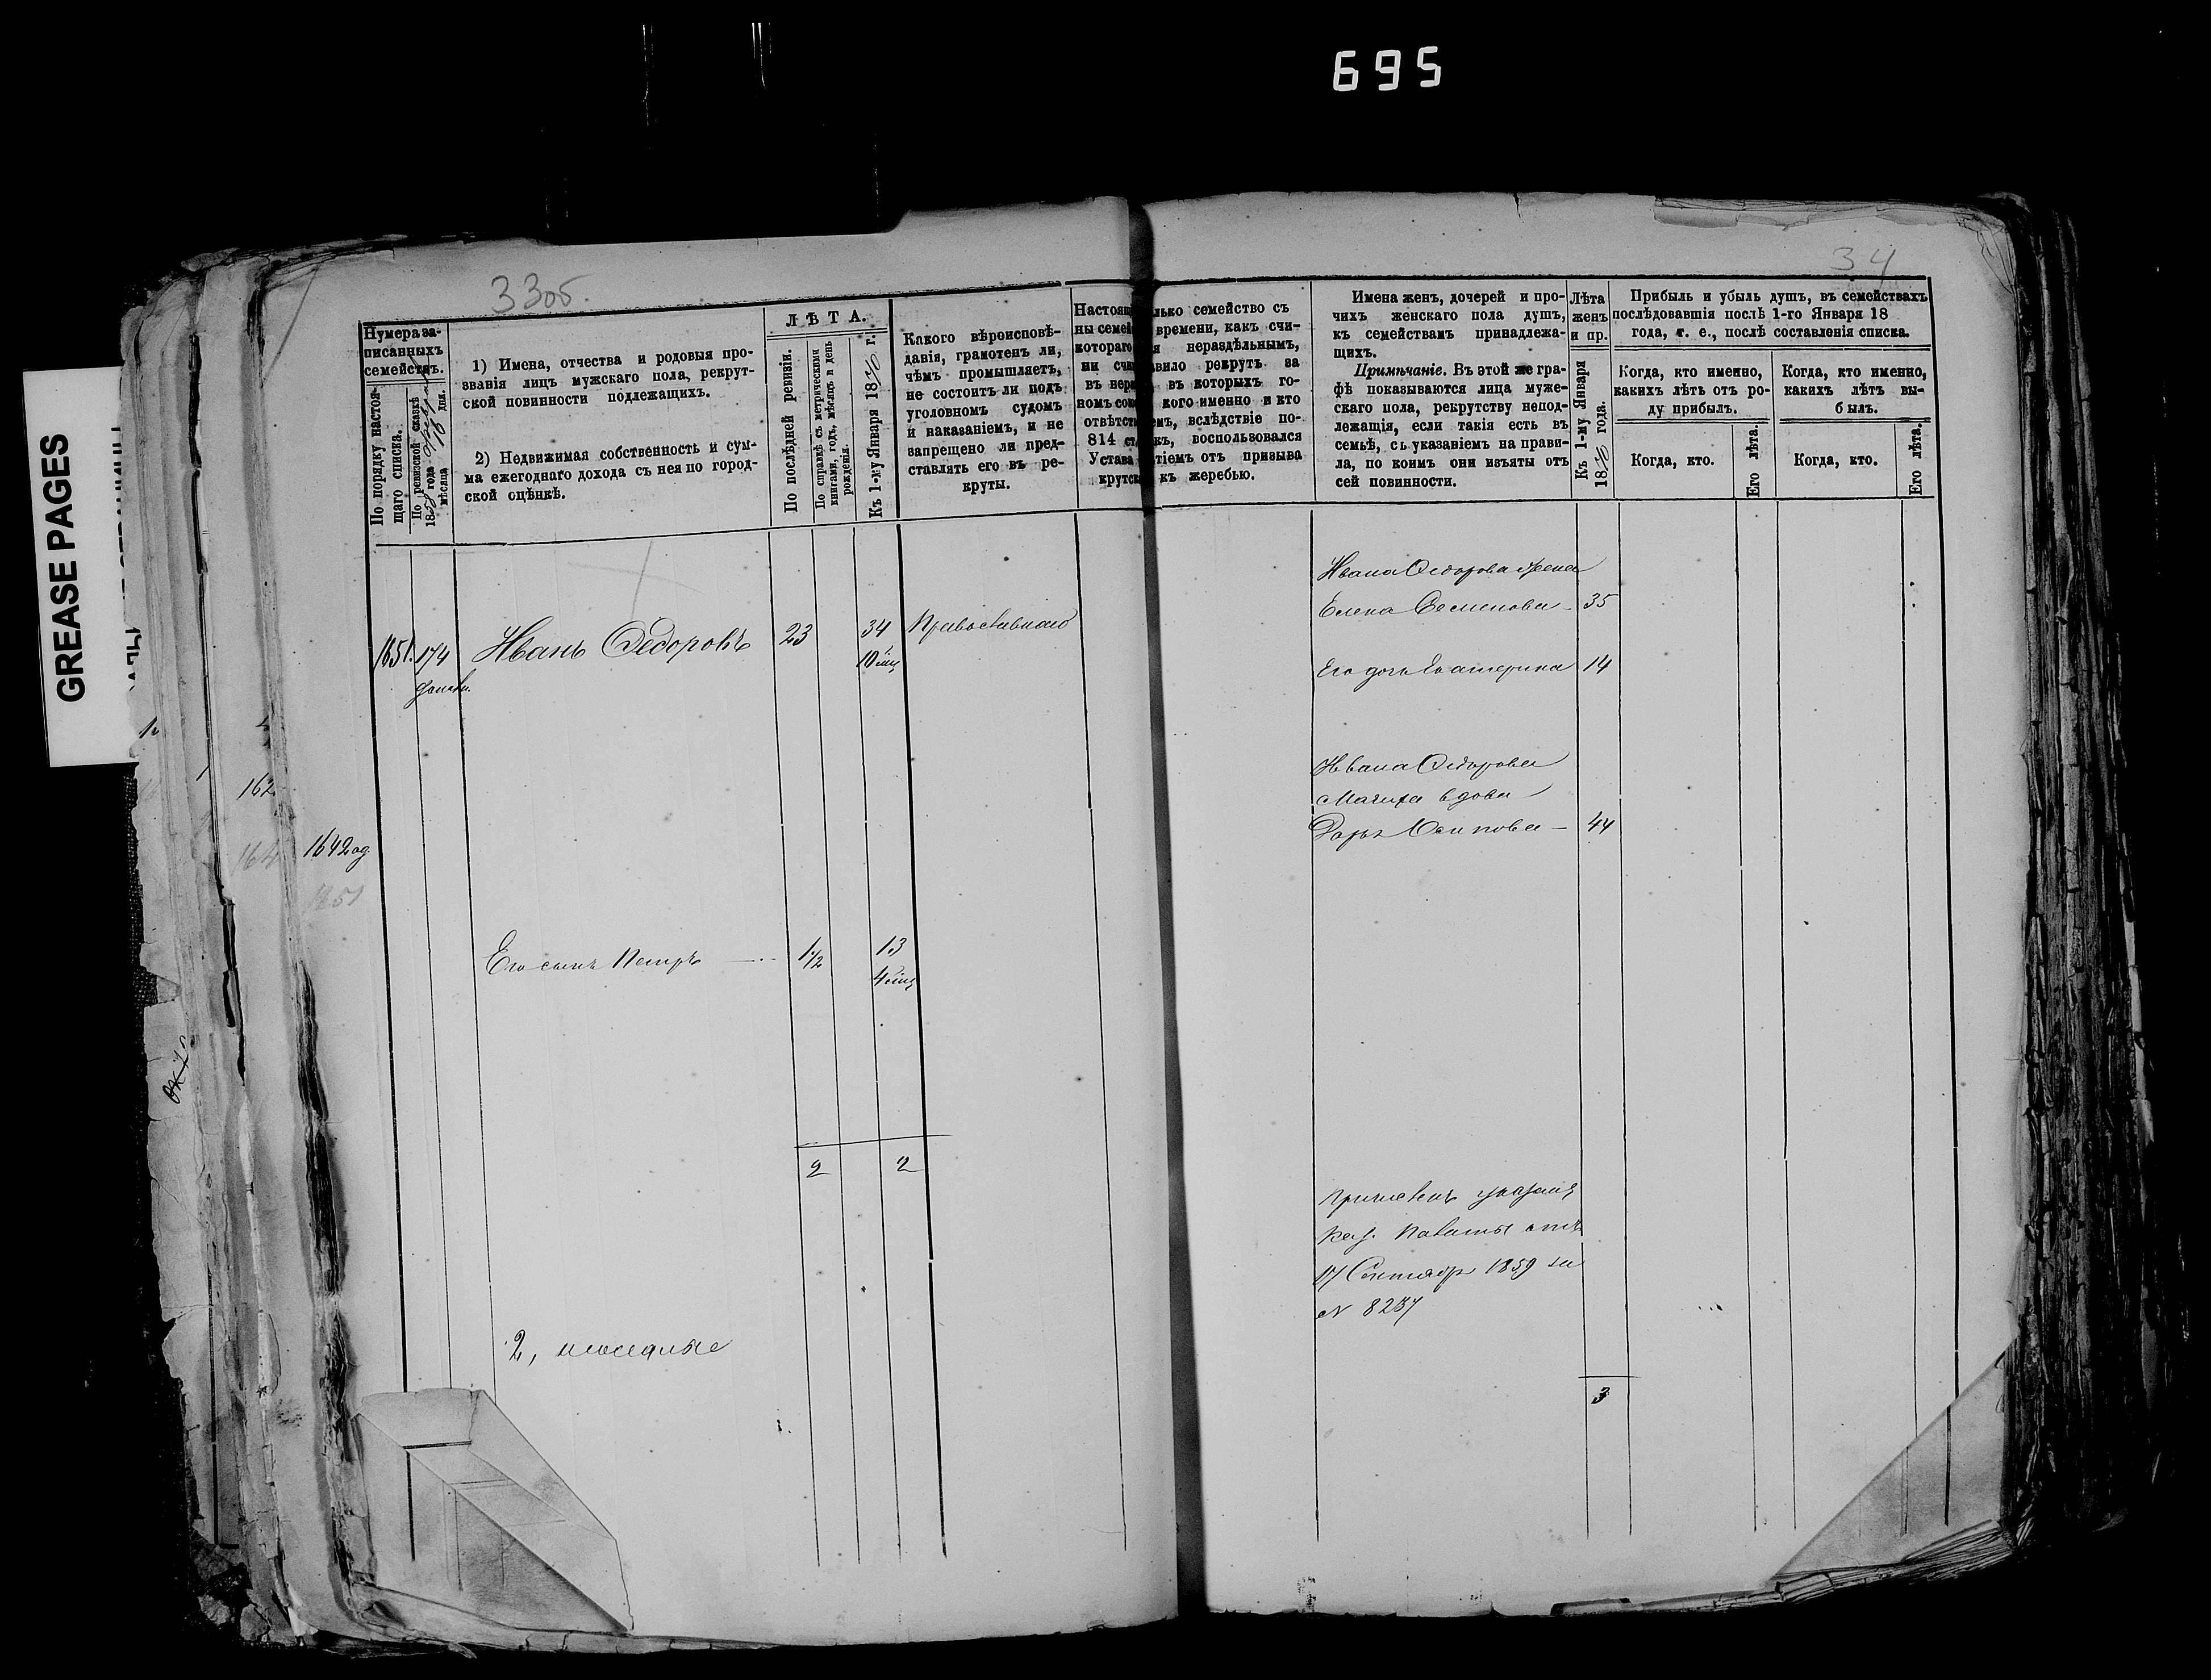 695
GREASE PAGES
33об.
34
Нумера за-
писанныхъ
семействъ.
По порядку настоя-
щаго списка.
По ревизской сказкѣ
1858 года
мѣсяца 16 дня.
1) Имена, отчества и родовыя про-
званія лицъ мужскаго пола, рекрут-
ской повинности подлежащихъ.
2) Недвижимая собственность и сум-
ма ежегоднаго дохода съ нея по город-
ской оцѣнкѣ.
ЛѢТА.
По послѣдней ревизіи.
По справкѣ съ метрическими
книгами, годъ, мѣсяцъ и день
рожденія.
Къ 1-му Января 1870 г.
Какого вѣроисповѣ-
данія, грамотенъ ли,
чѣмъ промышляетъ,
не состоитъ ли подъ
уголовномъ судомъ
и наказаніемъ, и не
запрещено ли пред-
ставлять его въ ре-
круты.
Настоящ лько семейство съ
ны семей времени, какъ счи-
котораго я нераздѣльнымъ,
ни счи авило рекрутъ за
въ нера въ которыхъ го-
номъ сос кого именно и кто
отвѣтст емъ, вслѣдствіе по-
814 ст. къ, воспользовался
Устава тіемъ отъ призыва
крутск къ жеребью.
Имена женъ, дочерей и про-
чихъ женскаго пола душъ,
къ семействамъ принадлежа-
щихъ.
Примѣчаніе. Въ этой же гра-
фѣ показываются лица муже-
скаго пола, рекрутству непод-
лежащія, если такія есть въ
семьѣ, съ указаніемъ на прави-
ла, по коимъ они изъяты отъ
сей повинности.
Лѣта
женъ
и пр.
Къ 1-му Января
1870 года.
Прибыль и убыль душъ, въ семействахъ
послѣдовавшія послѣ 1-го Января 18
года, т. е., послѣ составленія списка.
Когда, кто именно,
какихъ лѣтъ отъ ро-
ду прибылъ.
Когда, кто именно,
какихъ лѣтъ вы-
былъ.
Когда, кто.
Его лѣта.
Когда, кто.
Его лѣта.
1651. 174 Иванъ Федоровъ 23 34 Православнаго
10 мц
Ивана Федорова жена
Елена Семенова - 35
Его дочь Екатерина 14
Ивана Федорова
Мачиха вдова
Дарья Осипова - 44
162
164
1642 од.
1651
Его сынъ Петръ 1/2 13
4 мц
2 2
причислены указомъ
Каз. Палаты отъ
17 Сентябр 1859 за
N 8237
2,
3